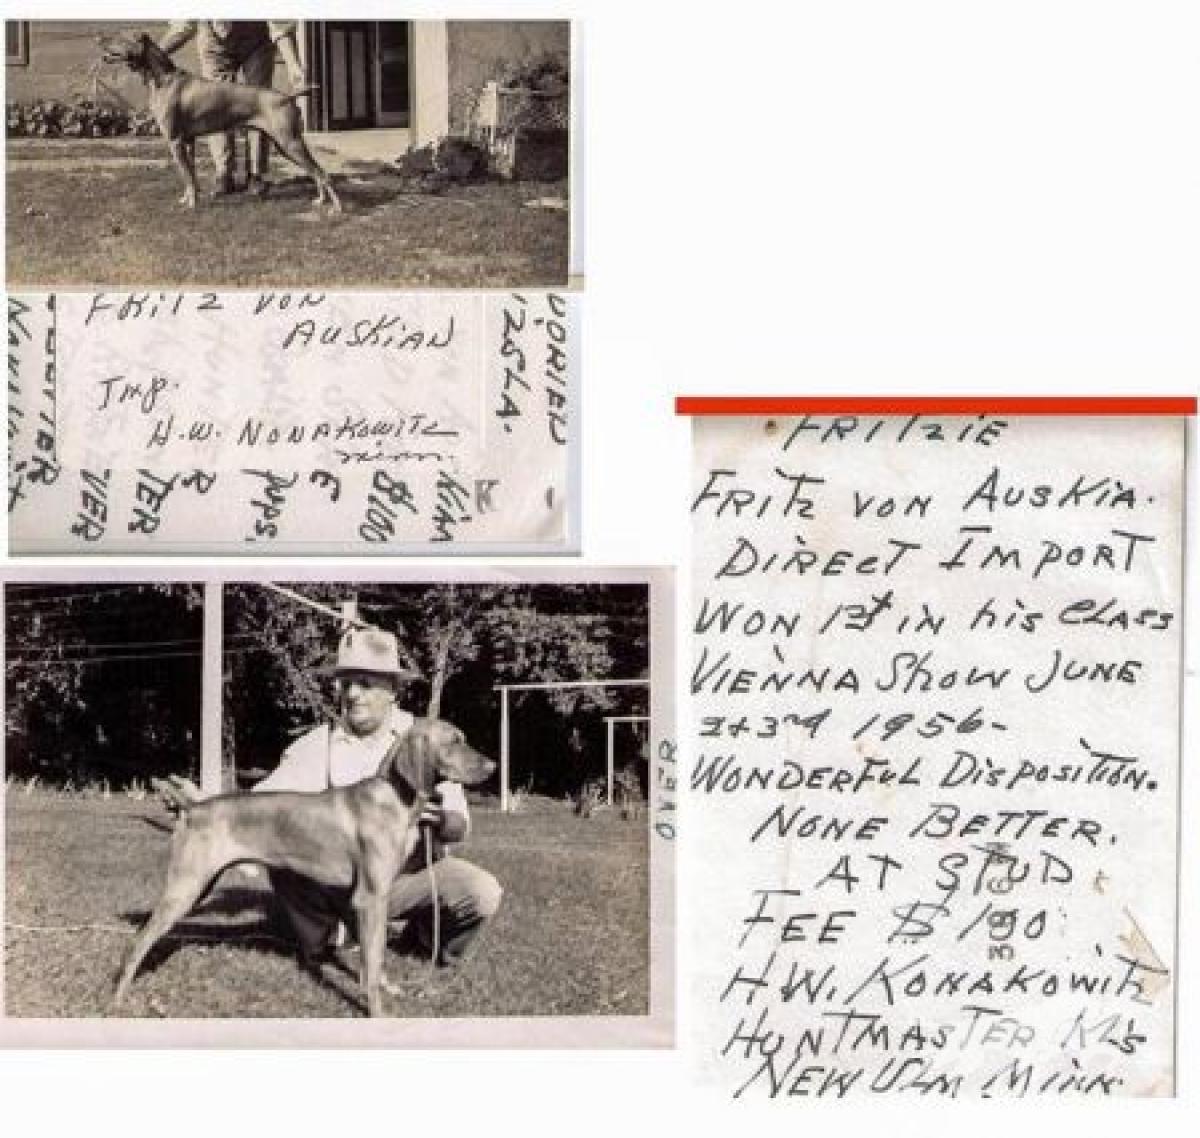 FRITZ VON
AUSKIAN
Imp.
H.W. NONAKOWITZ
minn.
VORIED
1/25LA.
BETTER
VER
TER
R
pups,
E
$100
Kim
K
OVER
FRITZIE
FRITZ VON AUSKIA.
DIRECT IMPORT
WON 1st IN his CLASS
VIENNA Show JUNE
2+3rd 1956-
WONDERFUL DISPOSITION.
NONE BETTER.
AT STUD
FEE $100
H.W. KONAKOWITZ
HUNTMASTER KLS
NEW ULM MINN.